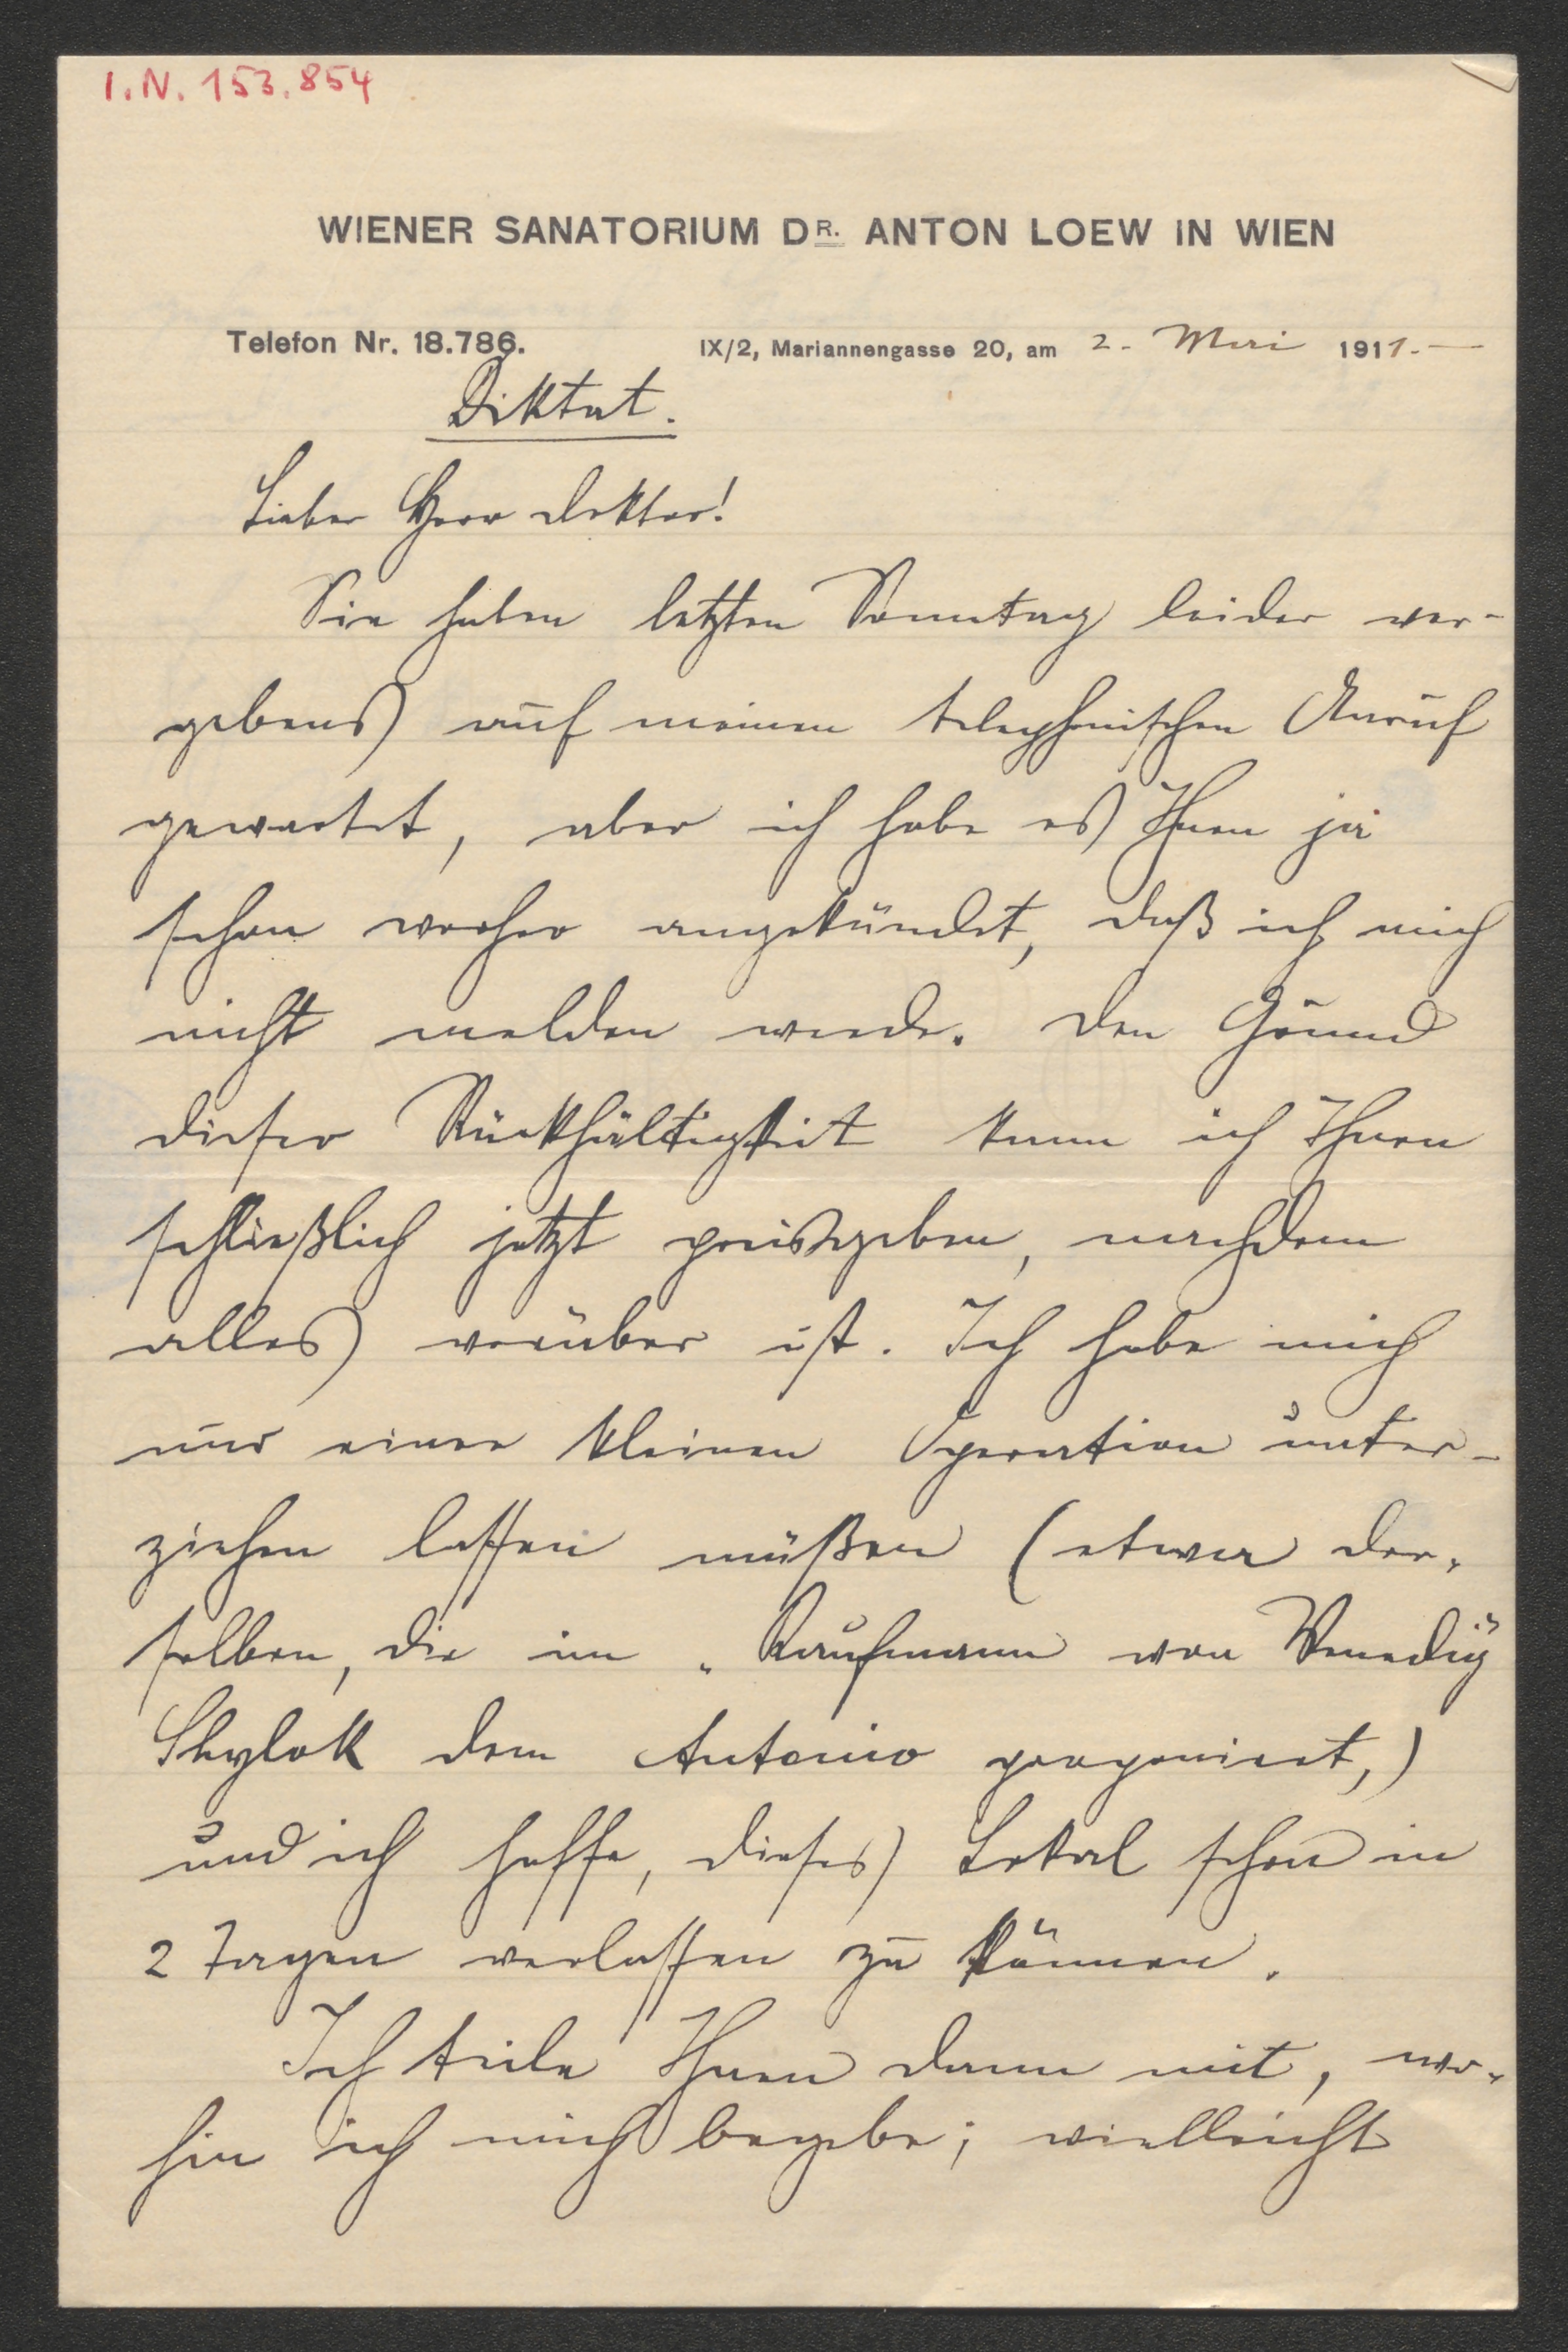 I.N. 153.854
WIENER SANATORIUM DR. ANTON LOEW IN WIEN
Telefon Nr. 18.786. IX/2, Mariannengasse 20, am 2. Mai 1911.-
Diktat.
Lieber Herr Doktor!
Sie haben letzten Sonntag leider ver-
gebens auf meinen telephonischen Anruf
gewartet, aber ich habe es Ihnen ja
schon vorher angekündet, daß ich mich
nicht melden werde. Den Grund
dieser Rückhältigkeit kann ich Ihnen
schließlich jetzt preisgeben, nachdem
alles vorüber ist. Ich habe mich
nur einer kleinen Operation unter-
ziehen lassen müßen (etwa der-
selben, die im "Kaufmann von Venedig"
Shylok dem Antonio proponiert,)
und ich hoffe, dieses Lokal schon in
2 Tagen verlassen zu können.
Ich teile Ihnen dann mit, wo-
hin ich mich begebe; vielleicht